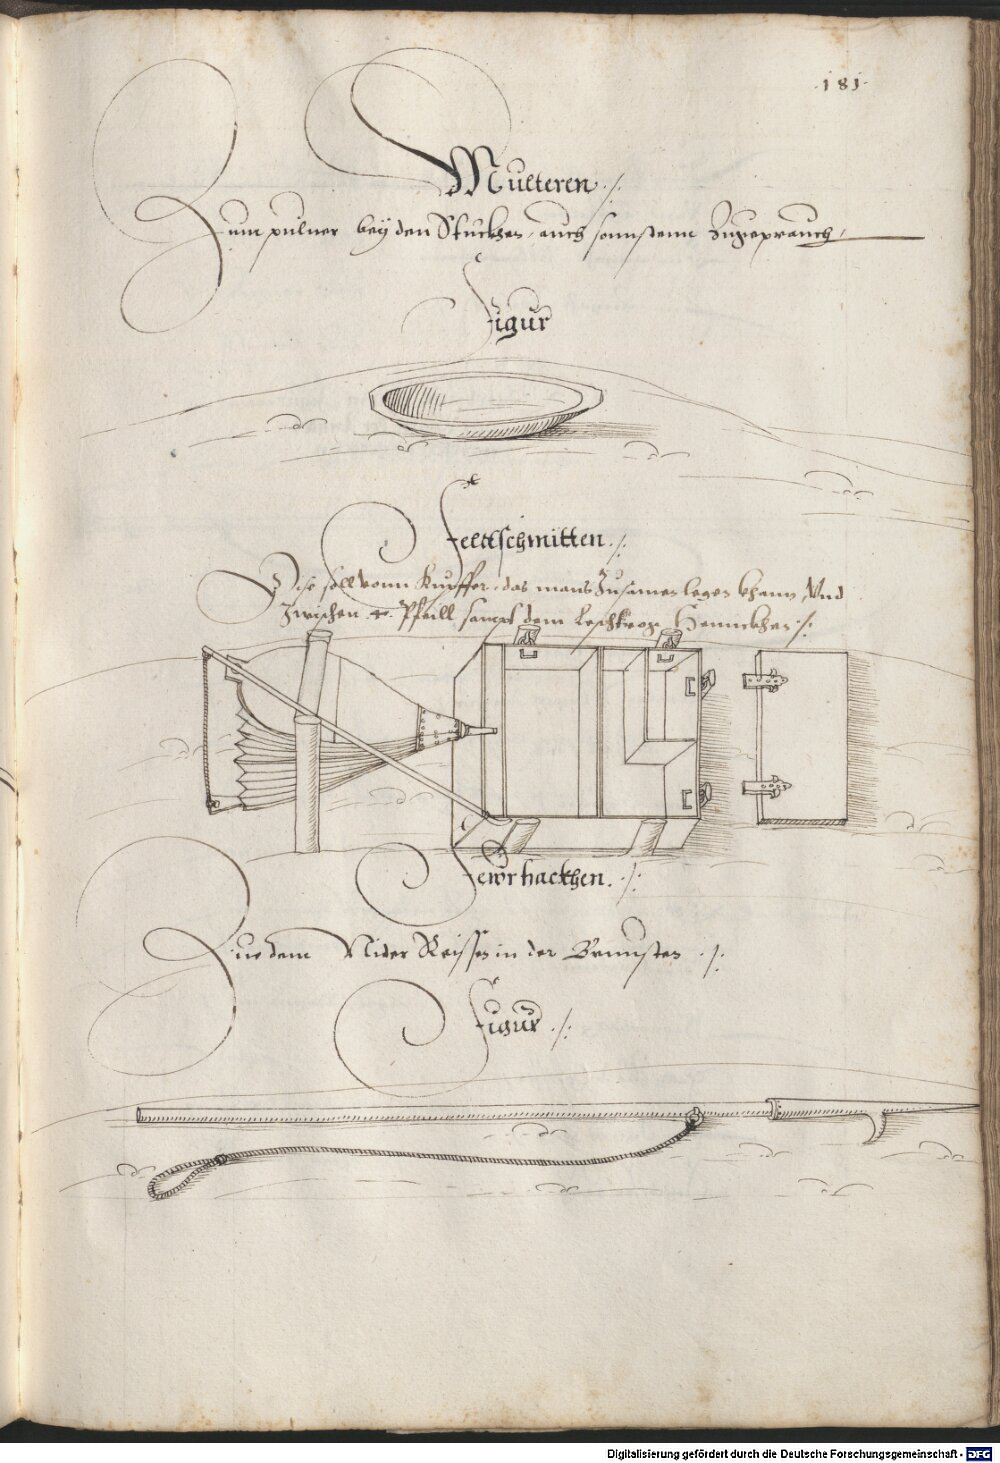 ·181·
Multeren ·/.
Zum pulner bey den Stuckhen, auch sonnstenn Zugeprauch,
Figur
Feltschmitten ·/.
Dise soll vonn Kupffer, das mans Zusamen legen khann, Vnd
Zwischen 4 Pfeill sampt dem Leschtrog Hennckhen ·/.
Fewrhackhen ·/.
Zue dem Nider Reissen in der Brunsten ·/.
Figur ·/.
Digitalisierung gefördert durch die Deutsche Forschungsgemeinschaft - DFG